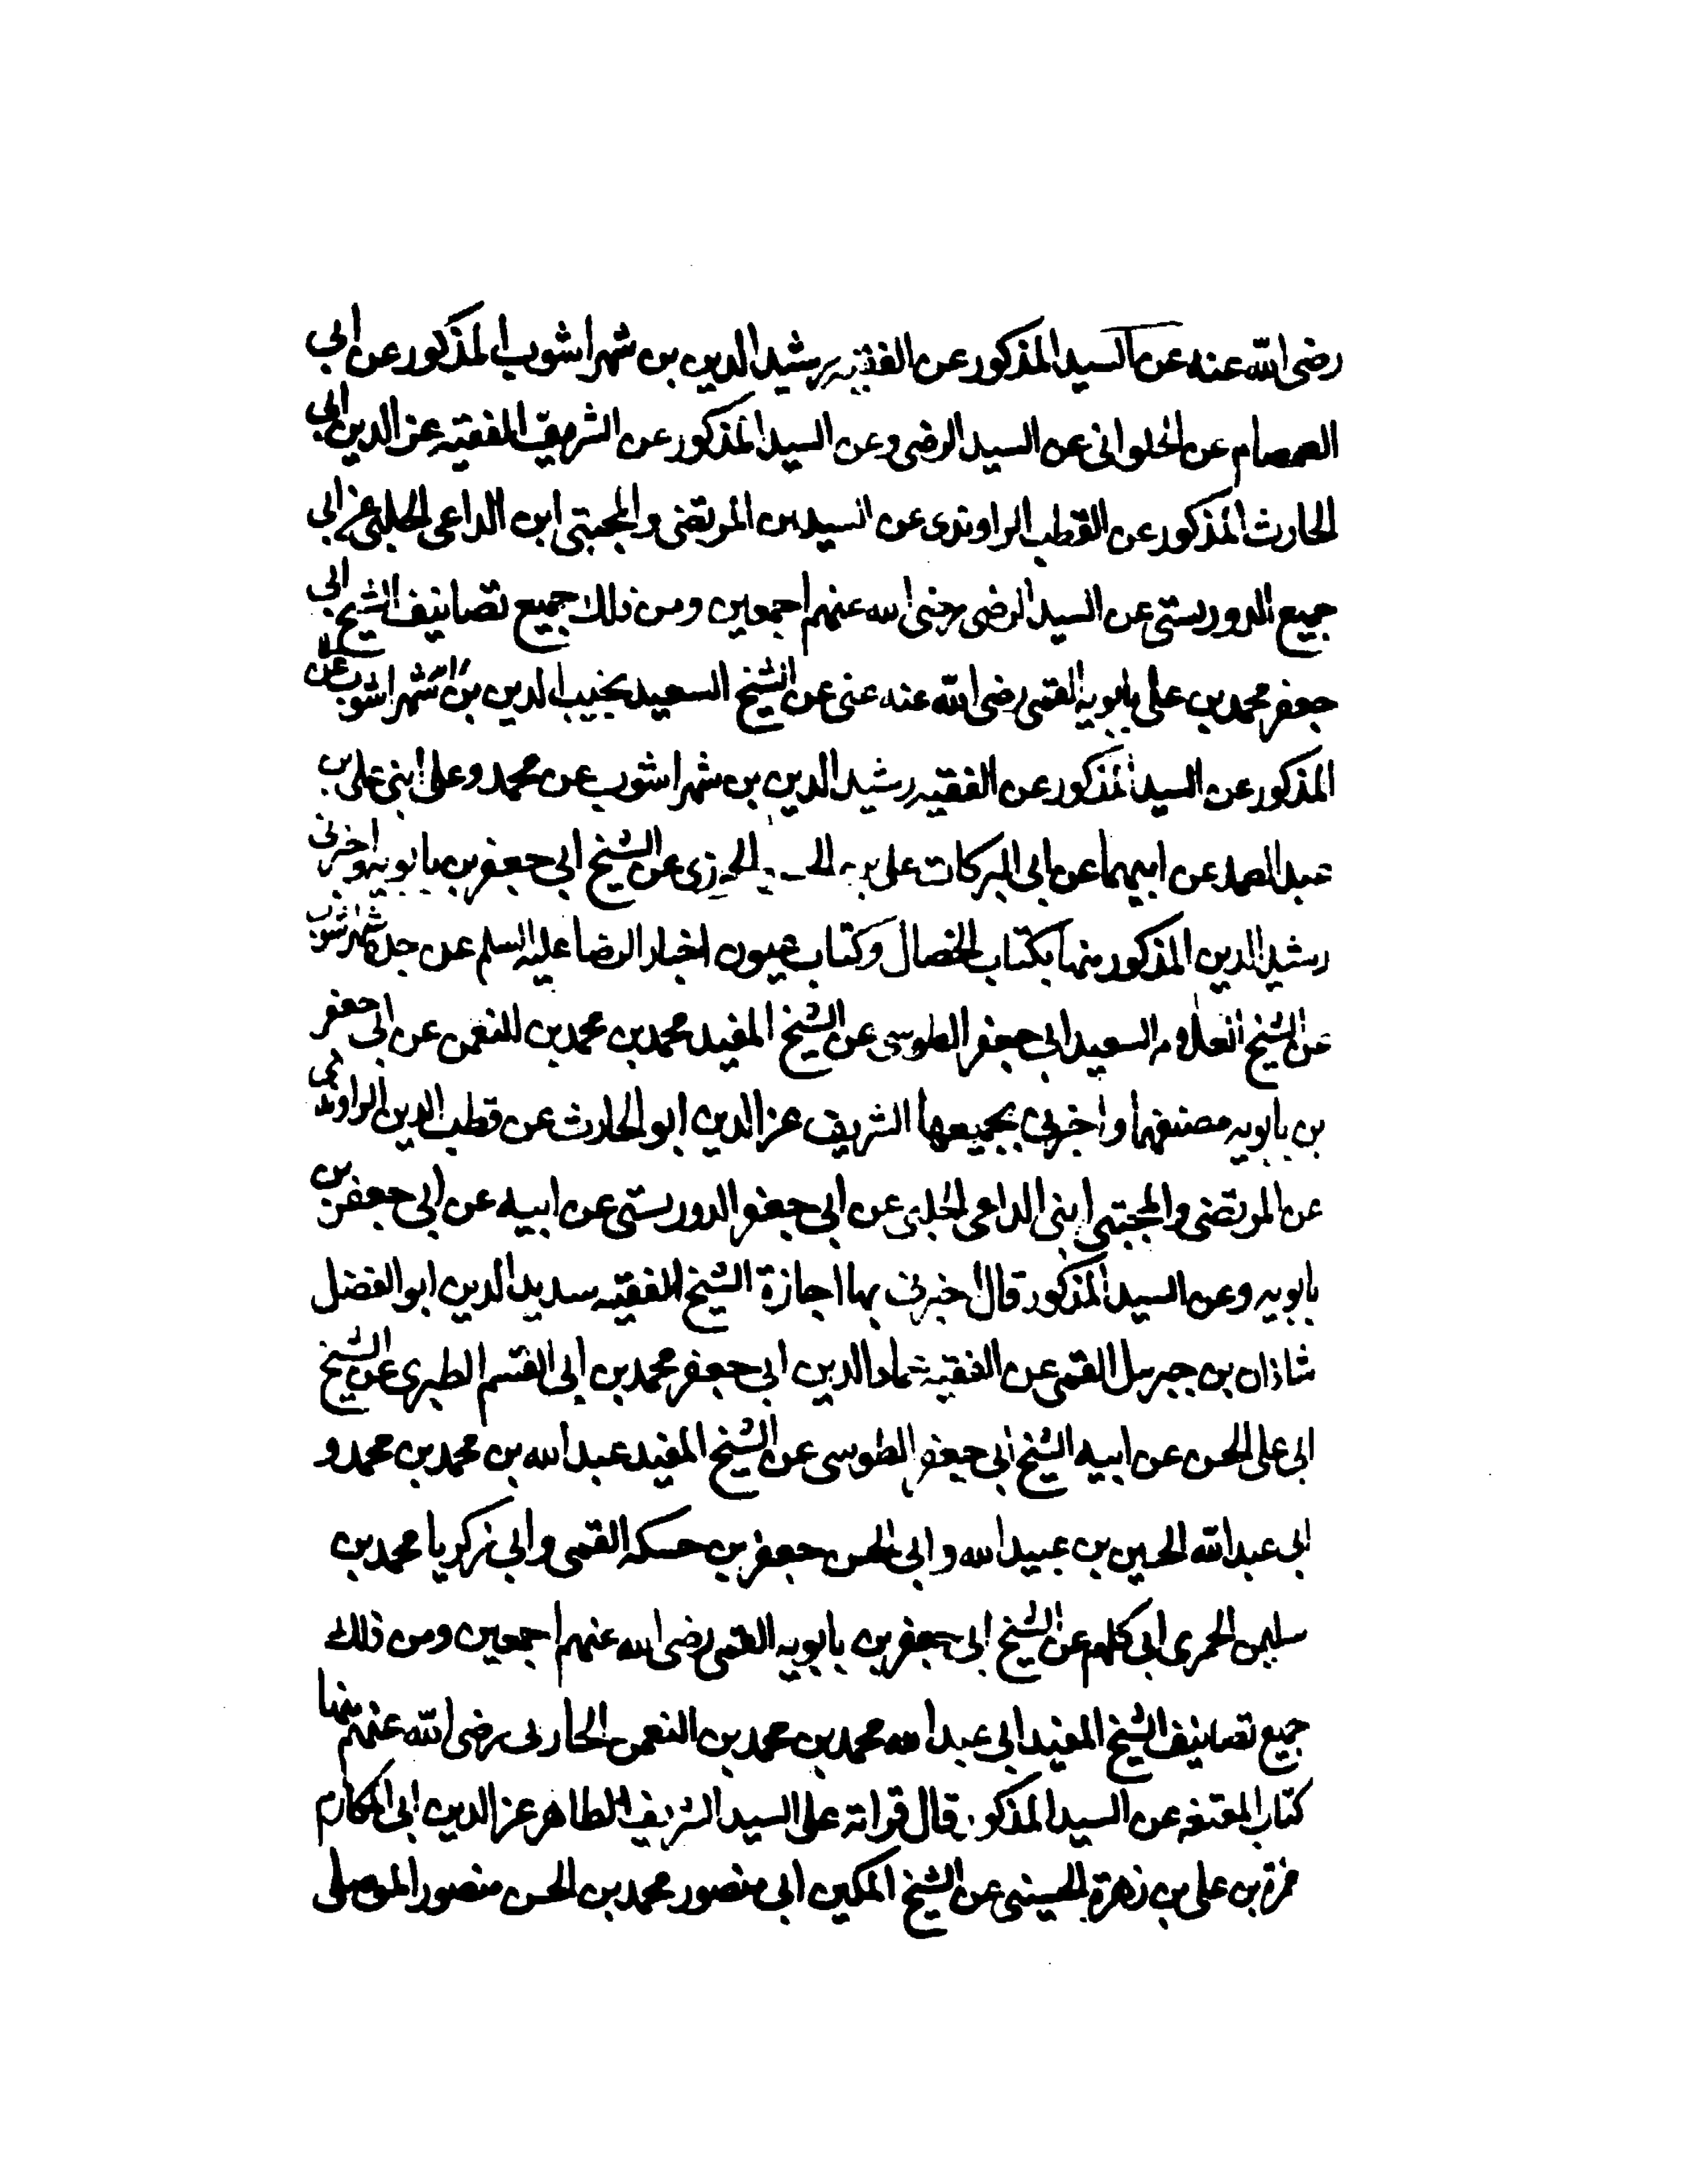 رضى الله عنه عن السيد المذكور عن الفقيه رشيد الدين بن شهراشوب المذكور عن ابي
الصمصام عن الحلواني عن السيد الرضى وعن السيد المذكور عن الشريف الفقيه عز الدين ابي
الحارث المذكور عن القطب الراوندى عن السيدين المرتضى والمجتبى ابن الداعى الحلبى عن ابي
جميع الدوريستى عن السيد الرضى رضى الله عنهم اجمعين ومن ذلك جميع تصانيف الشيخ ابي
جعفر محمد بن على بابويه القمى رضى الله عنه عنى عن الشيخ السعيد نجيب الدين بن شهراشوب عن
المذكور عن السيد المذكور عن الفقيه رشيد الدين بن شهراشوب عن محمد وعلى ابنى على بن
عبد الصمد عن ابيهما عن ابى البركات على عن الشيخ ابي جعفر بن بابويه واخبرنى
رشيد الدين المذكور منها بكتاب الخصال وكتاب عيون اخبار الرضا عليه السلم عن جده شهراشوب
عن الشيخ العلامه السعيد ابى جعفر الطوسى عن الشيخ المفيد محمد بن محمد بن النعمن عن ابى جعفر
بن بابويه مصنفهما واخبرنى بجميعها الشريف عز الدين ابو الحارث عن قطب الدين الراوندى
عن المرتضى والمجتبى ابنى الداعى الحلبى عن ابى جعفر الدوريستى عن ابيه عن ابى جعفر بن
بابويه وعن السيد المذكور قال اخبرنى بها اجازة الشيخ الفقيه سديد الدين ابو الفضل
شاذان بن جبريل القمى عن الفقيه عماد الدين ابى جعفر محمد بن ابى القسم الطبرى عن الشيخ
ابى على الحسن عن ابيه الشيخ ابى جعفر الطوسى عن الشيخ المفيد عبد الله بن محمد بن محمد و
ابى عبد الله الحسين بن عبيد الله وابى الحسن جعفر بن حسكه القمى وابى زكريا محمد بن
سليمن الحمرى ابى كلهم عن الشيخ ابى جعفر بن بابويه القمى رضى الله عنهم اجمعين ومن ذلك
جميع تصانيف الشيخ المفيد ابى عبد الله محمد بن محمد بن النعمن الحارثى رضى الله عنهم منها
كتاب المقنعه عن السيد المذكور قال قراته على السيد الشريف الطاهر عز الدين ابى المكارم
حمزة بن على بن زهرة الحسينى عن الشيخ المكين ابى منصور محمد بن الحسن منصور الموصلى